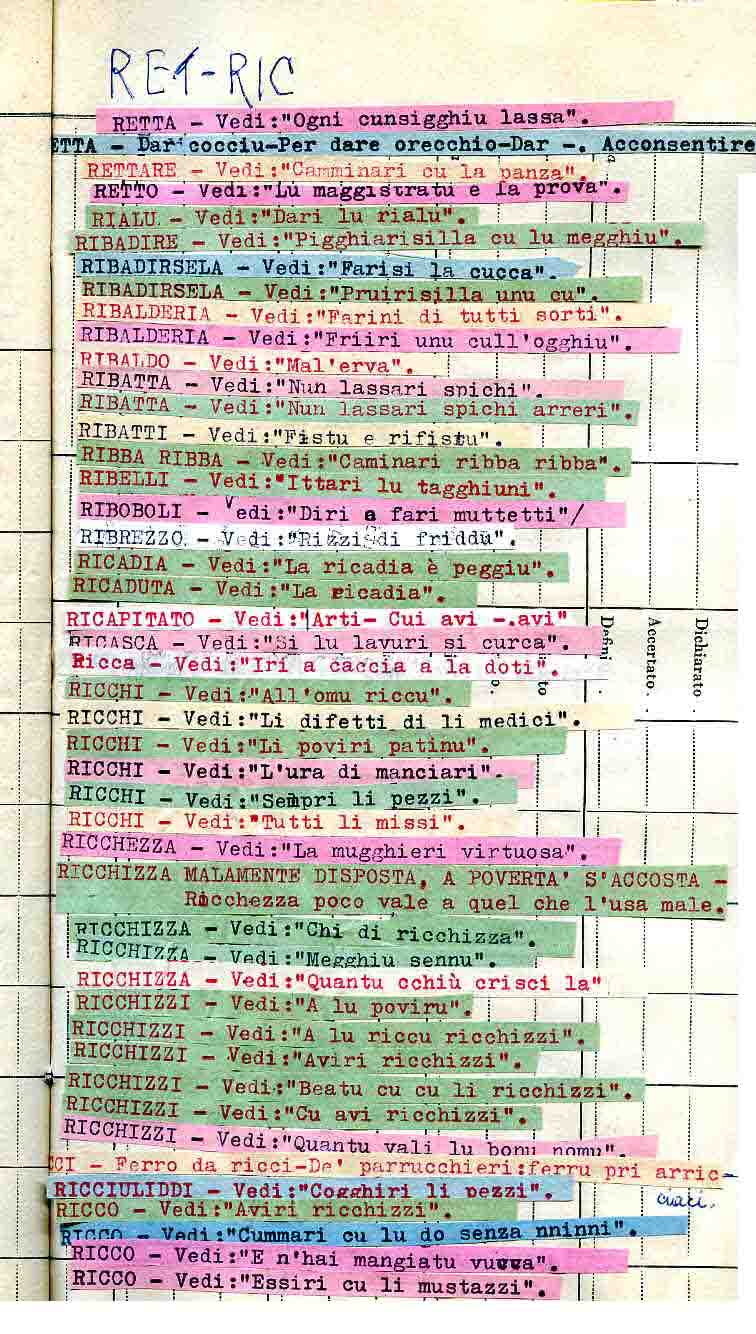 RET-RIC
RETTA - Vedi:"Ogni cunsigghiu lassa".
ETTA - Dar cocciu-Per dare orecchio-Dar -. Acconsentire
RETTARE - Vedi:"Camminari cu la panza".
RETTO - Vedi:"Lu maggistratu e la prova".
RIALU - Vedi:"Dari lu rialu".
RIBADIRE - Vedi:"Pigghiarisilla cu lu megghiu".
RIBADIRSELA - Vedi:"Farisi la cucca".
RIBADIRSELA - Vedi:"Pruirisilla unu cu".
RIBALDERIA - Vedi:"Farini di tutti sorti".
RIBALDERIA - Vedi:"Friiri unu cull'ogghiu".
RIBALDO - Vedi:"Mal'erva".
RIBATTA - Vedi:"Nun lassari spichi".
RIBATTA - Vedi:"Nun lassari spichi arreri".
RIBATTI - Vedi:"Fistu e rifistu".
RIBBA RIBBA - Vedi:"Caminari ribba ribba".
RIBELLI - Vedi:"Ittari lu tagghiuni".
RIBOBOLI - Vedi:"Diri a fari muttetti"/
RIBREZZO - Vedi:"Rizzi di friddu".
RICADIA - Vedi:"La ricadia è peggiu".
RICADUTA - Vedi:"La ricadia".
RICAPITATO - Vedi:"Arti- Cui avi -.avi"
RICASCA - Vedi:"Si lu lavuri si curca".
Ricca - Vedi:"Iri a caccia a la doti".
RICCHI - Vedi:"All'omu riccu".
RICCHI - Vedi:"Li difetti di li medici".
RICCHI - Vedi:"Li poviri patinu".
RICCHI - Vedi:"L'ura di manciari".
RICCHI - Vedi:"Sempri li pezzi".
RICCHI - Vedi:"Tutti li missi".
RICCHEZZA - Vedi:"La mugghieri virtuosa".
RICCHIZZA MALAMENTE DISPOSTA, A POVERTA' S'ACCOSTA -
Ricchezza poco vale a quel che l'usa male.
RICCHIZZA - Vedi:"Chi di ricchizza".
RICCHIZZA - Vedi:"Megghiu sennu".
RICCHIZZA - Vedi:"Quantu cchiù crisci la"
RICCHIZZI - Vedi:"A lu poviru".
RICCHIZZI - Vedi:"A lu riccu ricchizzi".
RICCHIZZI - Vedi:"Aviri ricchizzi".
RICCHIZZI - Vedi:"Beatu cu cu li ricchizzi".
RICCHIZZI - Vedi:"Cu avi ricchizzi".
RICCHIZZI - Vedi:"Quantu vali lu bonu nomu".
CCI - Ferro da ricci-De' parrucchieri:ferru pri arric-
RICCIULIDDI - Vedi:"Cogghiri li pezzi".
RICCO - Vedi:"Aviri ricchizzi".
RICCO - Vedi:"Cummari cu lu do senza nninni".
RICCO - Vedi:"E n'hai mangiatu vucca".
RICCO - Vedi:"Essiri cu li mustazzi".
Defini
Accertato
Dichiarato